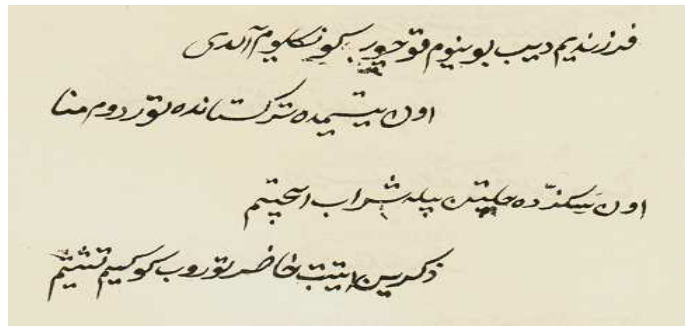 فرزندیم دیب بوینوم قوچوب کونکلوم آلدی
اون یتیمده ترکستانده توردوم منا
اون سکزّده چلتن بیله شراب ایچتم
ذکرین ایتیب حاضر توروب کوکسیم تشتیم